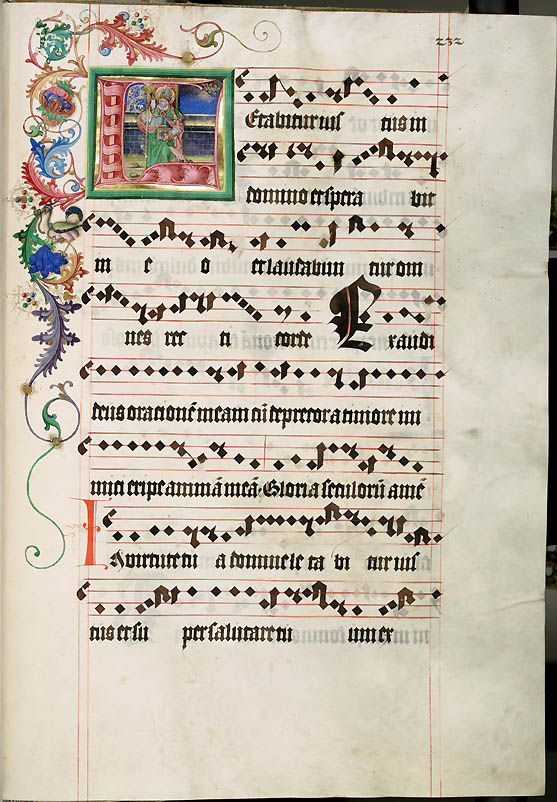 232
Letabitur ius tus in
domino et spera bit
in e o et laudabun tur om
nes rec ti corde Exaudi
deus orationē meam cū deprecor a timore ini
mici eripe animā meā Gloria seculorū amē
In virtute tu a domine le ta bi tur ius
tus et su per salutare tu um ex